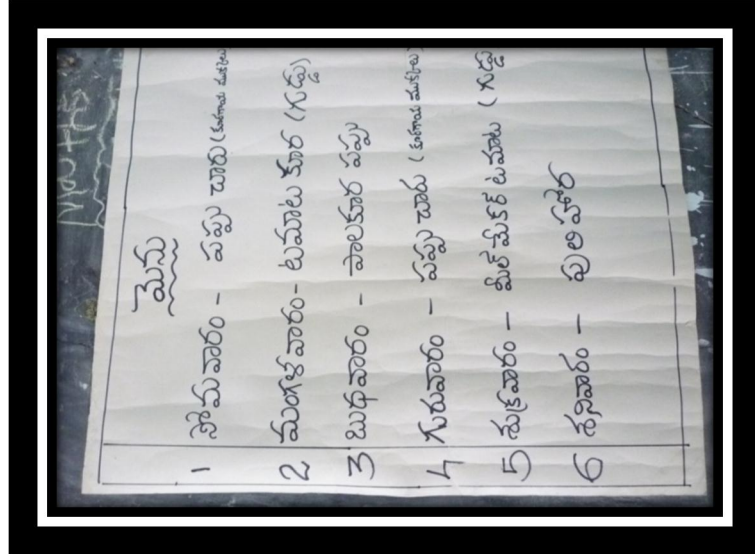 మెను
1 సోమవారం - పప్పు చారు (కూరగాయ ముక్కలు
2 మంగళవారం - టమాట కూర (గుడ్డు)
3 బుధవారం - పాలకూర పప్పు
4 గురువారం - పప్పు చారు (కూరగాయ ముక్కలు)
5 శుక్రవారం - మిల్ మేకర్ టమాట (గుడ్డు
6 శనివారం - పులిహోర